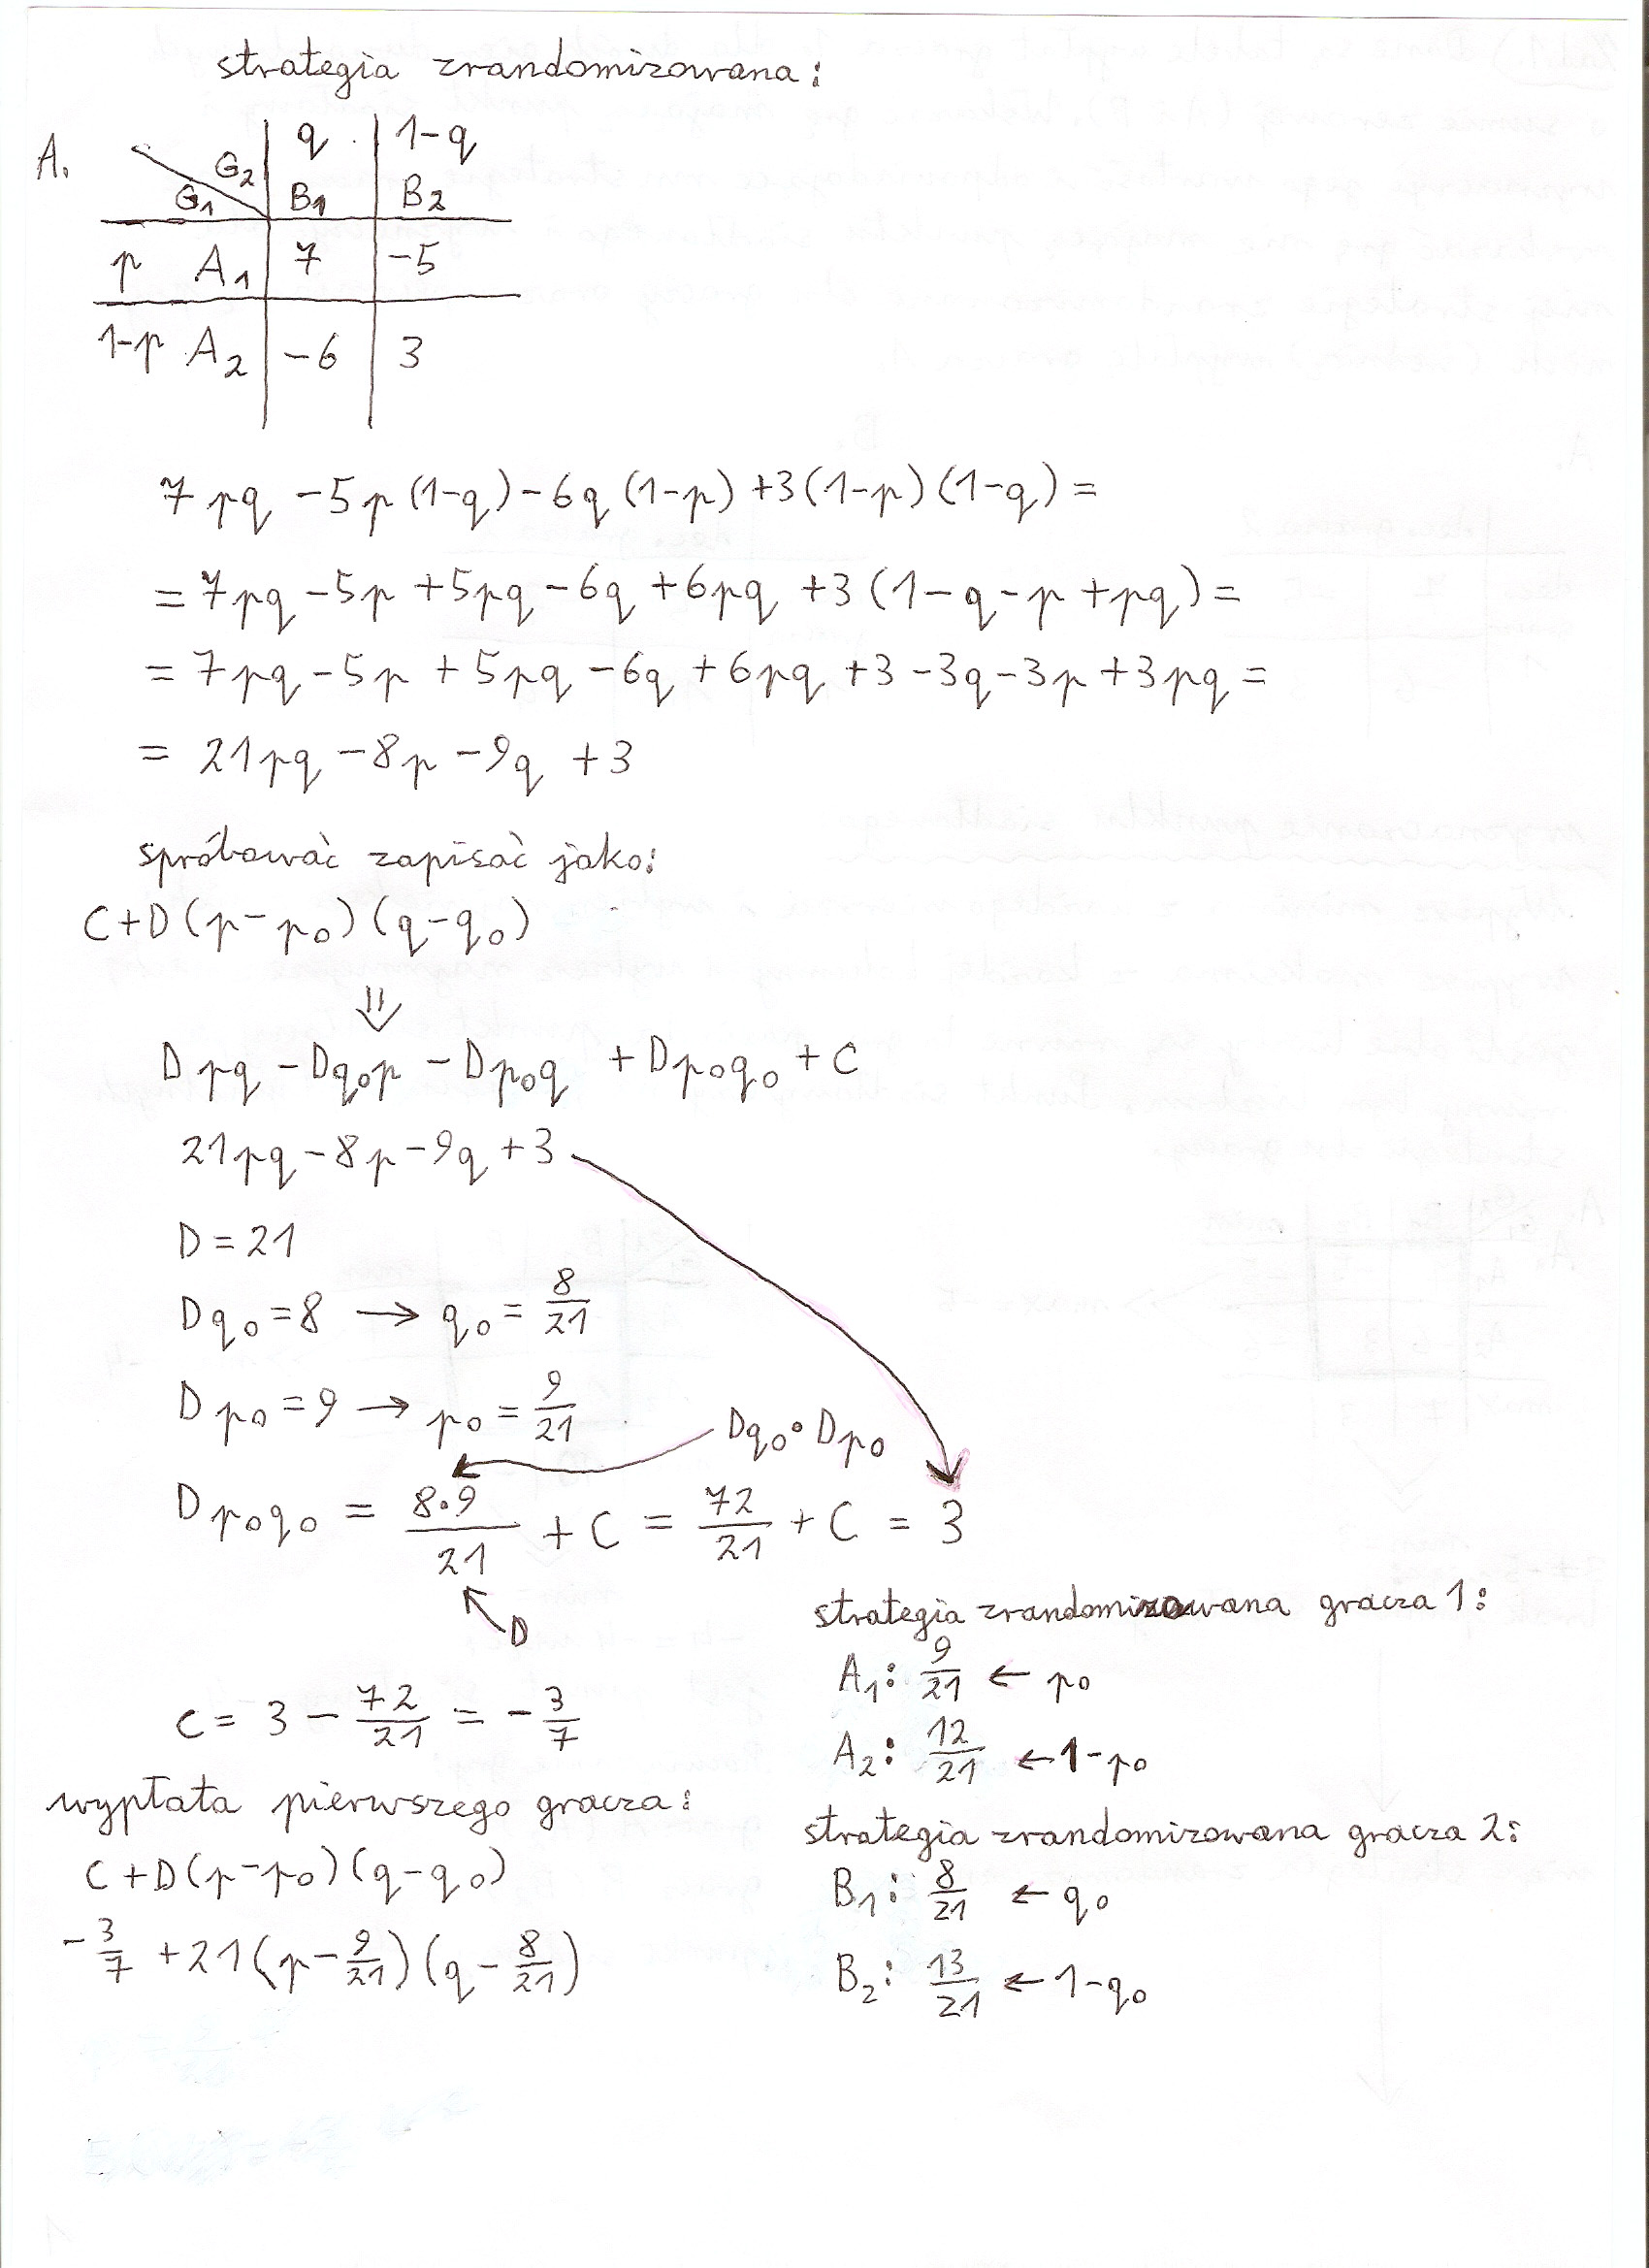 strategia zrandomizowana:
A.
G2 q 1-q
G1 B1 B2
p A1 7 -5
1-p A2 -6 3
7pq -5p(1-q) -6q(1-p) +3(1-p)(1-q) =
= 7pq -5p +5pq -6q +6pq +3(1-q-p+pq) =
= 7pq -5p +5pq -6q +6pq +3 -3q -3p +3pq =
= 21pq -8p -9q +3
spróbować zapisać jako:
C+D(p-p0)(q-q0)
⇓
Dpq -Dq0p -Dp0q +Dp0q0 +C
21pq -8p -9q +3
D = 21
Dq0 = 8 → q0 = 8/21
Dp0 = 9 → p0 = 9/21
Dq0·Dp0
Dp0q0 = 8·9/21 + C = 72/21 + C = 3
D
C = 3 - 72/21 = -3/7
wypłata pierwszego gracza:
C+D(p-p0)(q-q0)
-3/7 +21(p-9/21)(q-8/21)
strategia zrandomizowana gracza 1:
A1: 9/21 ← p0
A2: 12/21 ← 1-p0
strategia zrandomizowana gracza 2:
B1: 8/21 ← q0
B2: 13/21 ← 1-q0